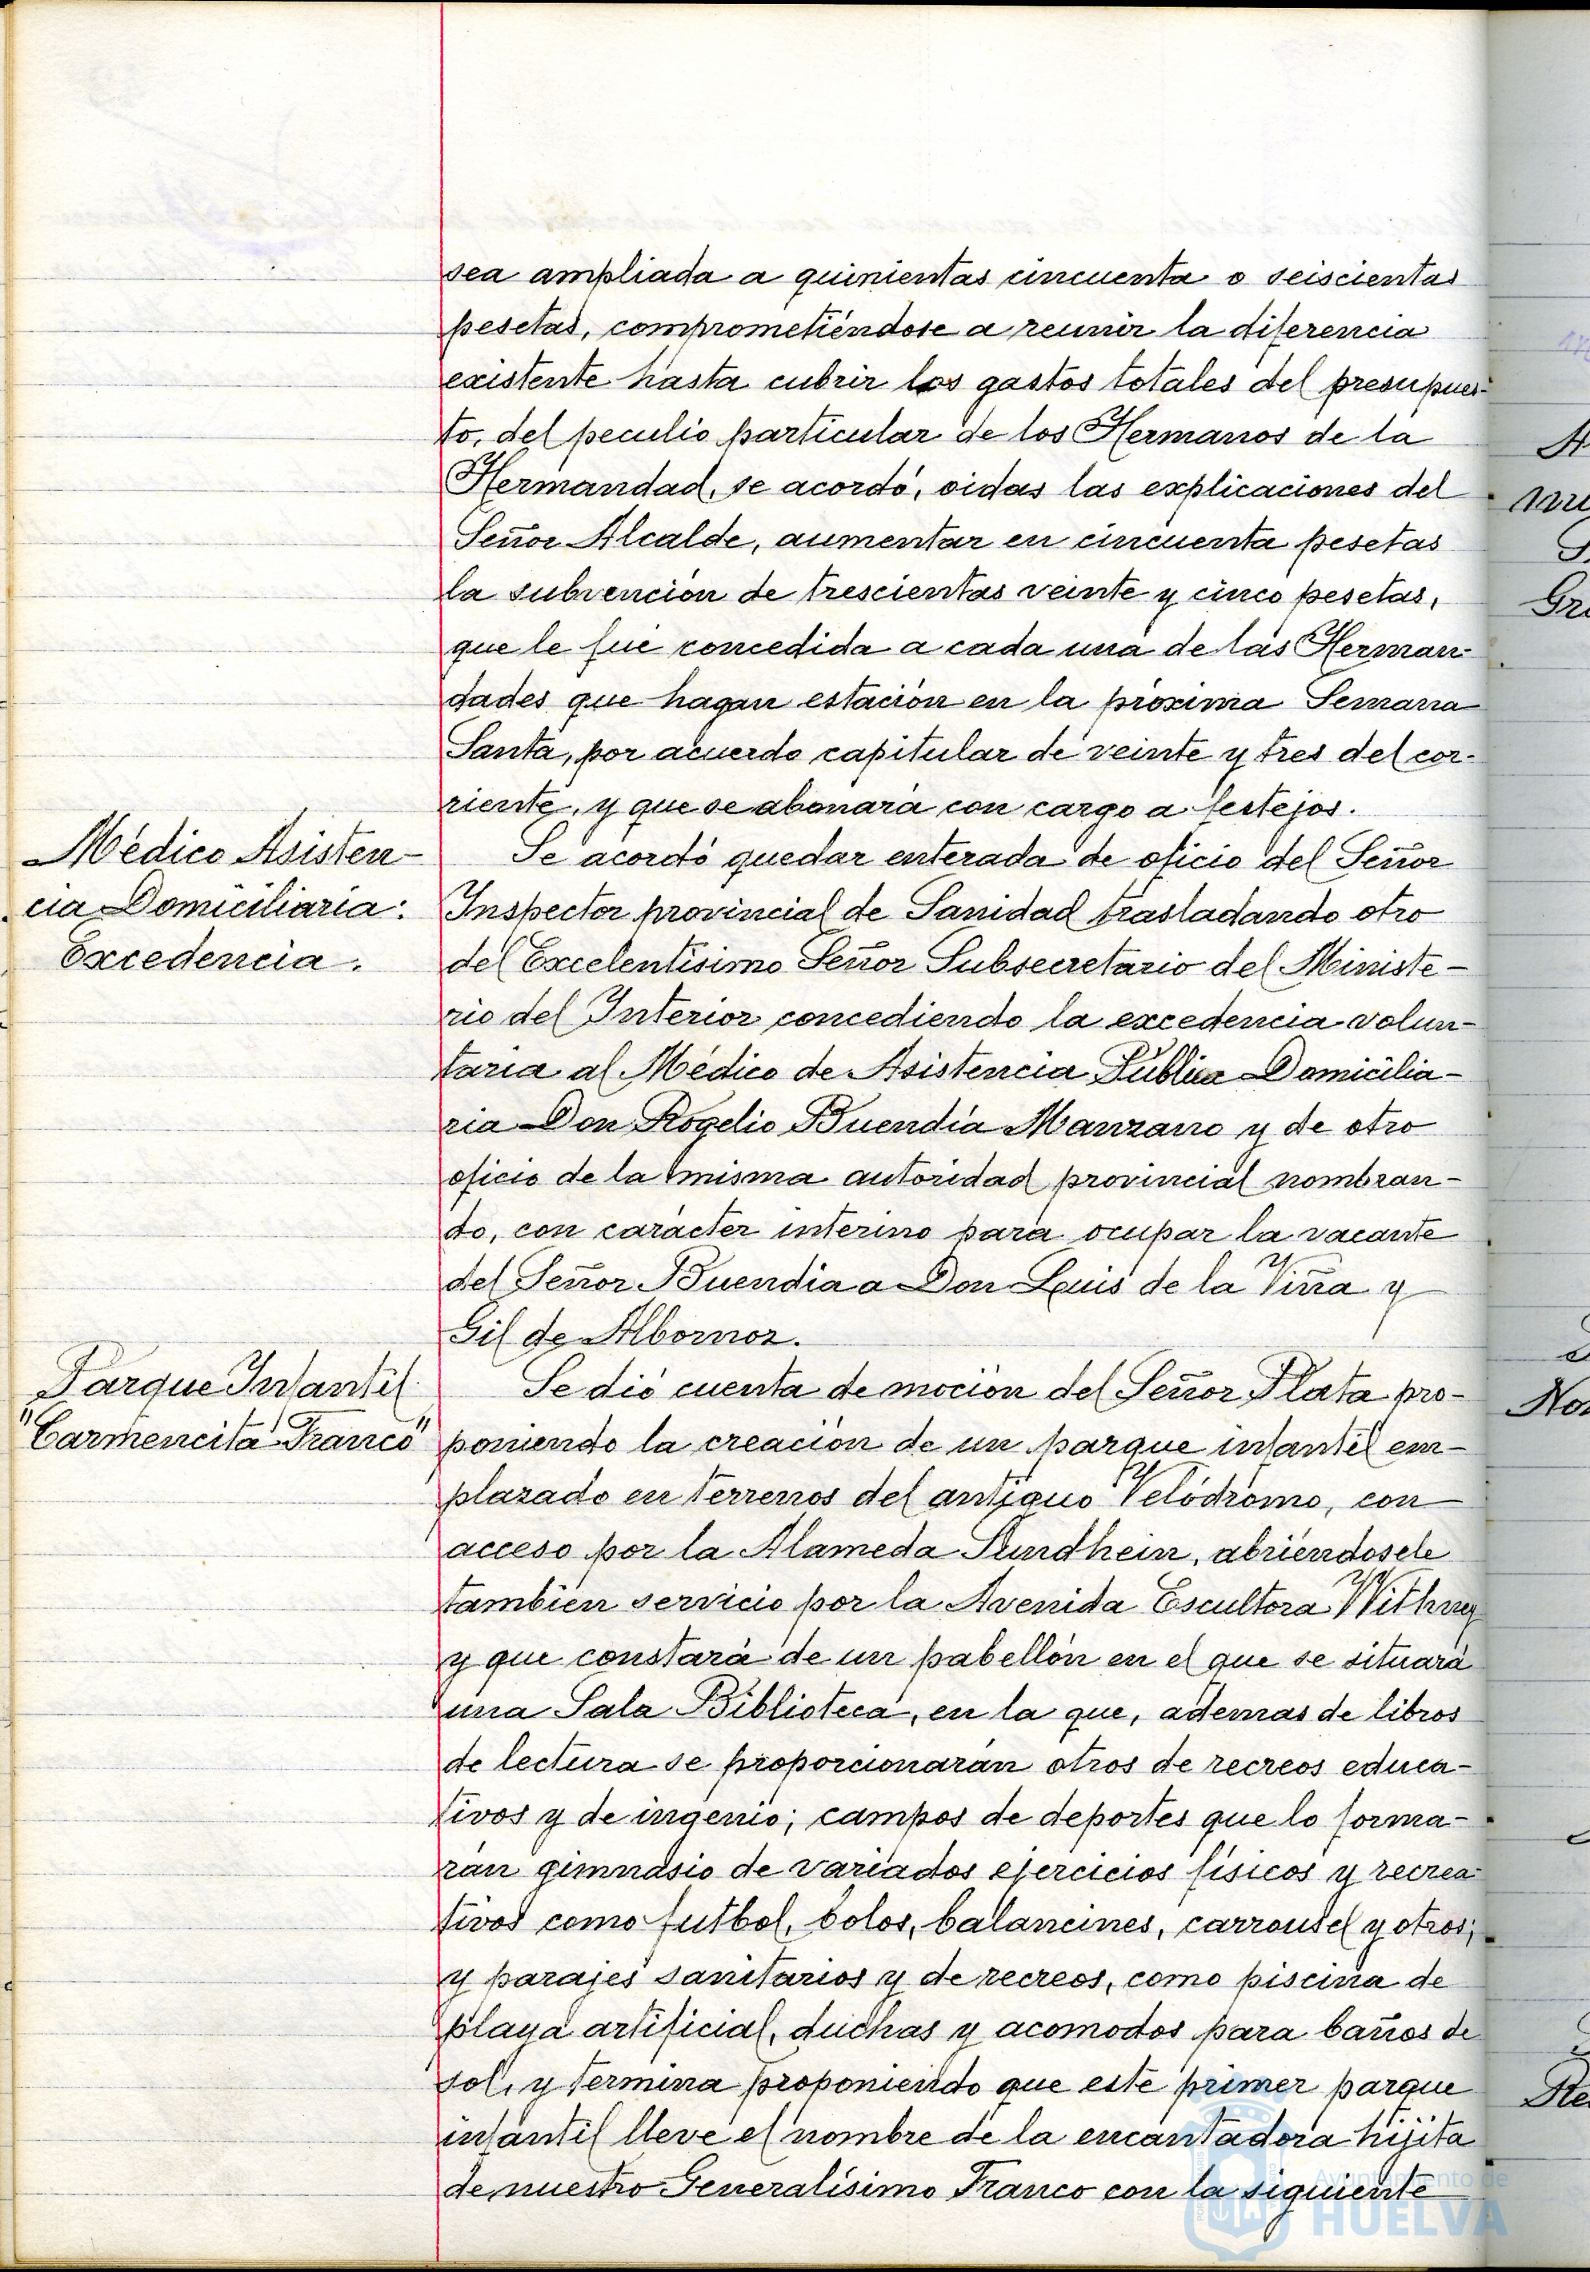 sea ampliada a quinientas cincuenta o seiscientas
pesetas, comprometiéndose a reunir la diferencia
existente hasta cubrir los gastos totales del presupues-
to, del peculio particular de los Hermanos de la
Hermandad, se acordó, oidas las explicaciones del
Señor Alcalde, aumentar en cincuenta pesetas
la subvención de trescientas veinte y cinco pesetas,
que le fué concedida a cada una de las Herman-
dades que hagan estación en la próxima Semana
Santa, por acuerdo capitular de veinte y tres del cor-
riente, y que se abonará con cargo a festejos.
Médico Asisten-
cia Domiciliaria:
Excedencia.
Se acordó quedar enterada de oficio del Señor
Inspector provincial de Sanidad trasladando otro
del Excelentísimo Señor Subsecretario del Ministe-
rio del Interior concediendo la excedencia volun-
taria al Médico de Asistencia Pública Domicilia-
ria Don Rogelio Buendía Manzano y de otro
oficio de la misma autoridad provincial nombran-
do, con carácter interino para ocupar la vacante
del Señor Buendia a Don Luis de la Viña y
Gil de Albornoz.
Parque Infantil
"Carmencita Franco"
Se dió cuenta de moción del Señor Plata pro-
poniendo la creación de un parque infantil em-
plazado en terrenos del antiguo Velódromo, con
acceso por la Alameda Sundhein, abriéndosele
también servicio por la Avenida Escultora Withney
y que constará de un pabellón en el que se situará
una Sala Biblioteca, en la que, además de libros
de lectura se proporcionarán otros de recreos educa-
tivos y de ingenio; campos de deportes que lo forma-
rán gimnasio de variados ejercicios físicos y recrea-
tivos como futbol, bolos, balancines, carrousel y otros;
y parajes sanitarios y de recreos, como piscina de
playa artificial, duchas y acomodos para baños de
sol, y termina proponiendo que este primer parque
infantil lleve el nombre de la encantadora hijita
de nuestro Generalísimo Franco con la siguiente
Ayuntamiento de
HUELVA